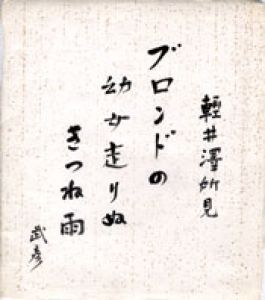 輕井澤所見
ブロンドの
幼女走りぬ
きつね雨
武彦